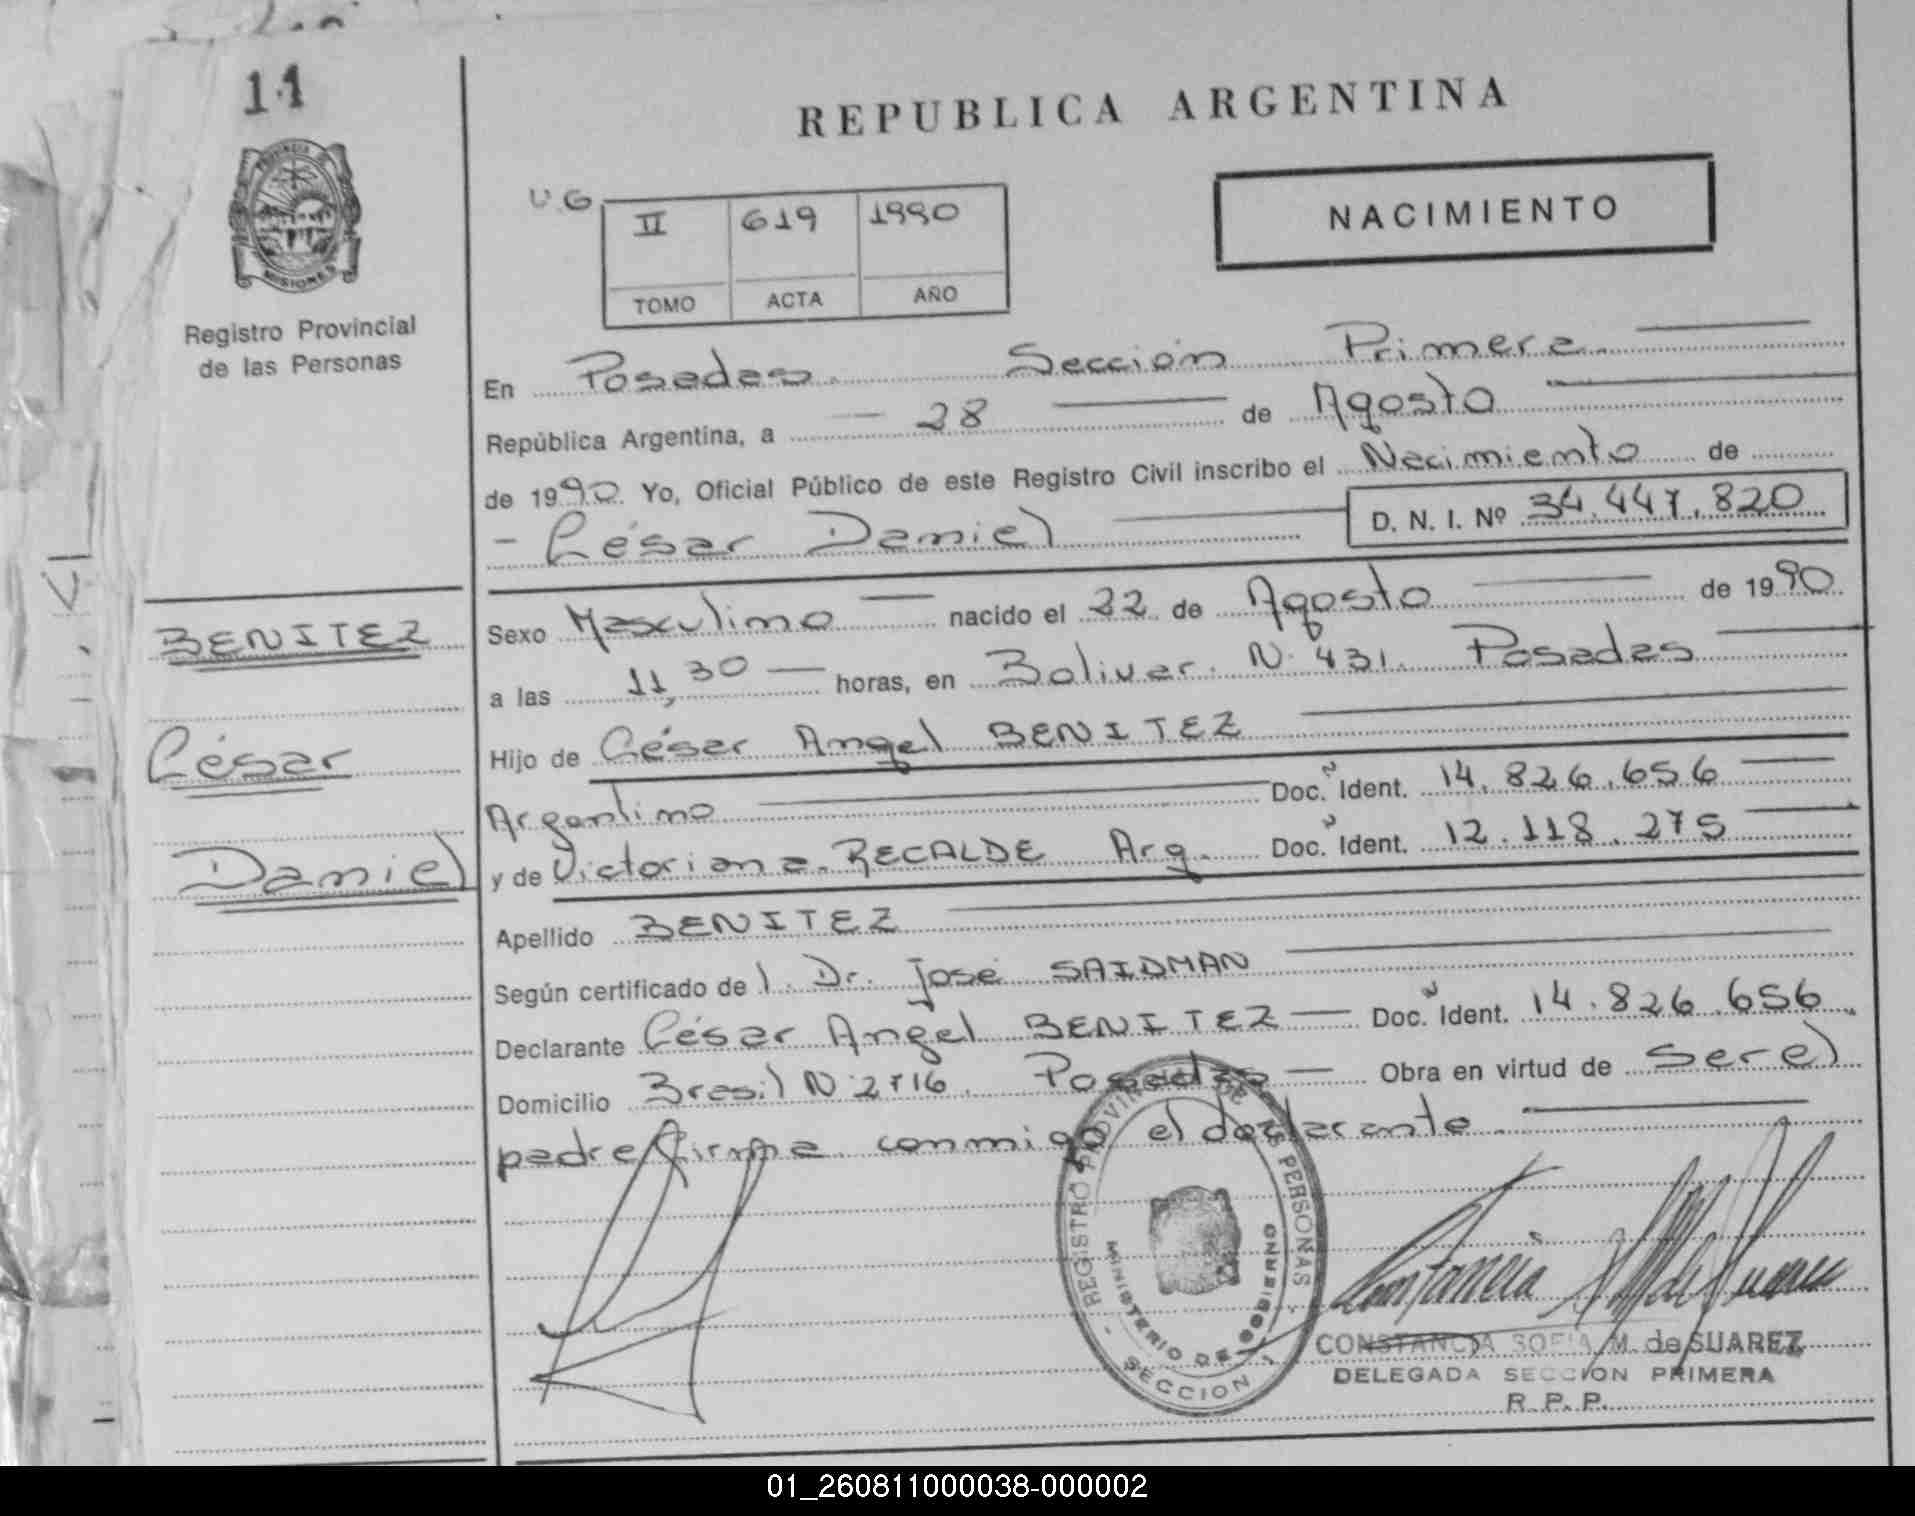 11
REPUBLICA ARGENTINA
PROVINCIA DE
MISIONES
Registro Provincial
de las Personas
U.G
II 619 1990
TOMO ACTA AÑO
NACIMIENTO
En Posadas. Sección Primera
República Argentina, a 28 de Agosto
de 1990. Yo, Oficial Público de este Registro Civil inscribo el Nacimiento de
- César Daniel D. N. I. Nº 34.447.820
Sexo Masculino nacido el 22 de Agosto de 1990
a las 11,30 horas, en Bolivar. N. 431. Posadas
Hijo de César Angel BENITEZ
Argentino Doc. Ident. 14.826.656
y de Victoriana RECALDE Arg. Doc. Ident. 12.118.275
Apellido BENITEZ
Según certificado del Dr. José SAIDMAN
Declarante César Angel BENITEZ Doc. Ident. 14.826.656
Domicilio Brasil N 2716. Posadas Obra en virtud de ser el
padre firma conmigo el declarante.
BENITEZ
César
Daniel
REGISTRO PROVINCIAL DE LAS PERSONAS
MINISTERIO DE GOBIERNO
SECCION 1
CONSTANCIA SOFIA M. de SUAREZ
DELEGADA SECCION PRIMERA
R. P. P.
01_260811000038-000002